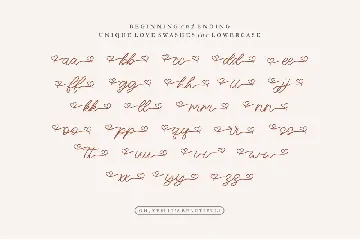 BEGINNING and ENDING
UNIQUE LOVE SWASHES the LOWERCASE
aa bb cc dd ee
ff gg hh ii jj
kk ll mm nn
oo pp qq rr ss
tt uu vv ww
xx yy zz
OH, YES! IT'S BEAUTIFUL!